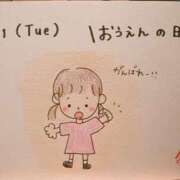 1 (Tue) \おうえんの日
がんばれー!!